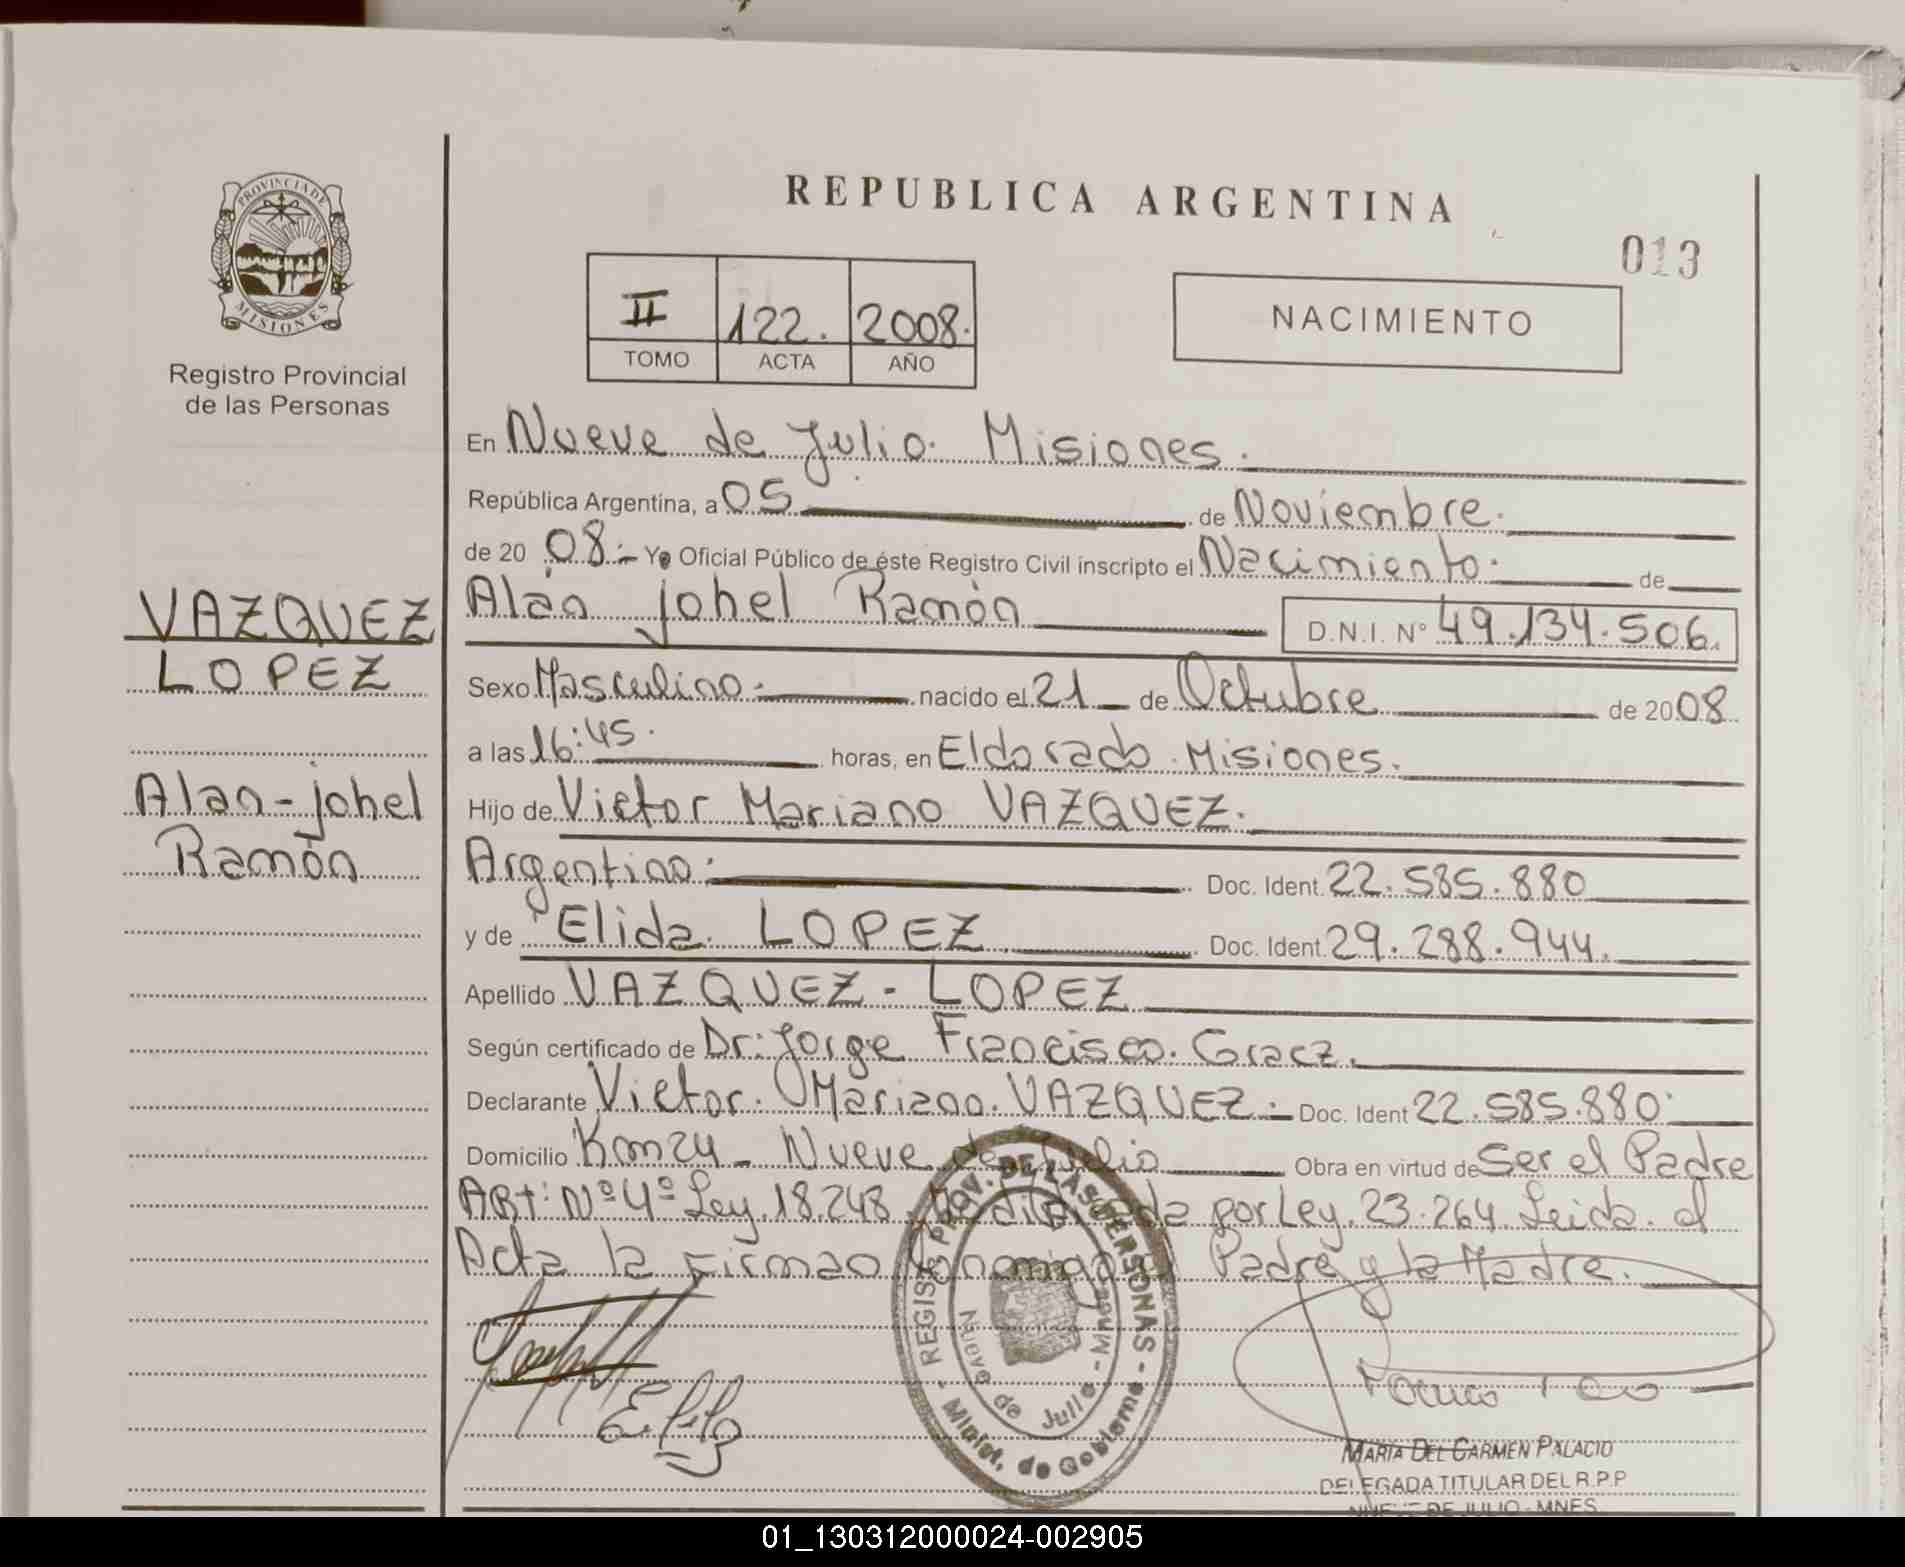 REPUBLICA ARGENTINA
013
PROVINCIA DE
MISIONES
Registro Provincial
de las Personas
II 122. 2008.
TOMO ACTA AÑO
NACIMIENTO
En Nueve de Julio. Misiones.
República Argentina, a 05 de Noviembre.
de 20 08.- Yo Oficial Público de éste Registro Civil inscripto el Nacimiento. de
VAZQUEZ
LOPEZ
Alan-johel
Ramón
Alan johel Ramón D.N.I. Nº 49.134.506.
Sexo Masculino.- nacido el 21 de Octubre de 2008
a las 16:45. horas, en Eldorado. Misiones.
Hijo de Victor Mariano VAZQUEZ.
Argentino. Doc. Ident. 22.585.880
y de Elida LOPEZ Doc. Ident. 29.288.944.
Apellido VAZQUEZ - LOPEZ
Según certificado de Dr: Jorge Francisco. Gracz.
Declarante Victor. Mariano. VAZQUEZ.- Doc. Ident 22.585.880.
Domicilio Km24 - Nueve de Julio Obra en virtud de Ser el Padre
ARt: Nº 4º Ley. 18.248 por Ley. 23.264 Leida. el
Acta la Firman Conmigo Padre y la Madre.
REGIST. PROV. DE LAS PERSONAS
- Minist. de Gobierno -
Nueve de Julio - Mnes
MARÍA DEL CARMEN PALACIO
DELEGADA TITULAR DEL R.P.P
NUEVE DE JULIO - MNES.
01_130312000024-002905